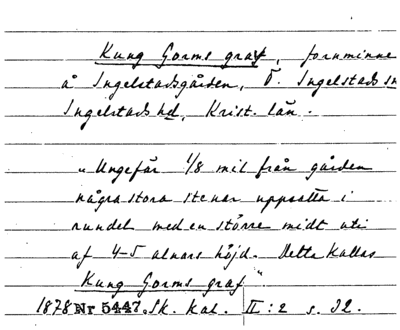 Kung Gorms graf, fornminne
å Ingelstadsgården, Ö. Ingelstads sn
Ingelstads hd, Krist. län.
"Ungefär 1/8 mil från gården
några stora stenar uppsatta i
rundel med en större midt uti
af 4-5 alnars höjd. Detta kallas
Kung Gorms graf"
1878 Nr 5447. Sk. Kat. II:2 s. 32.